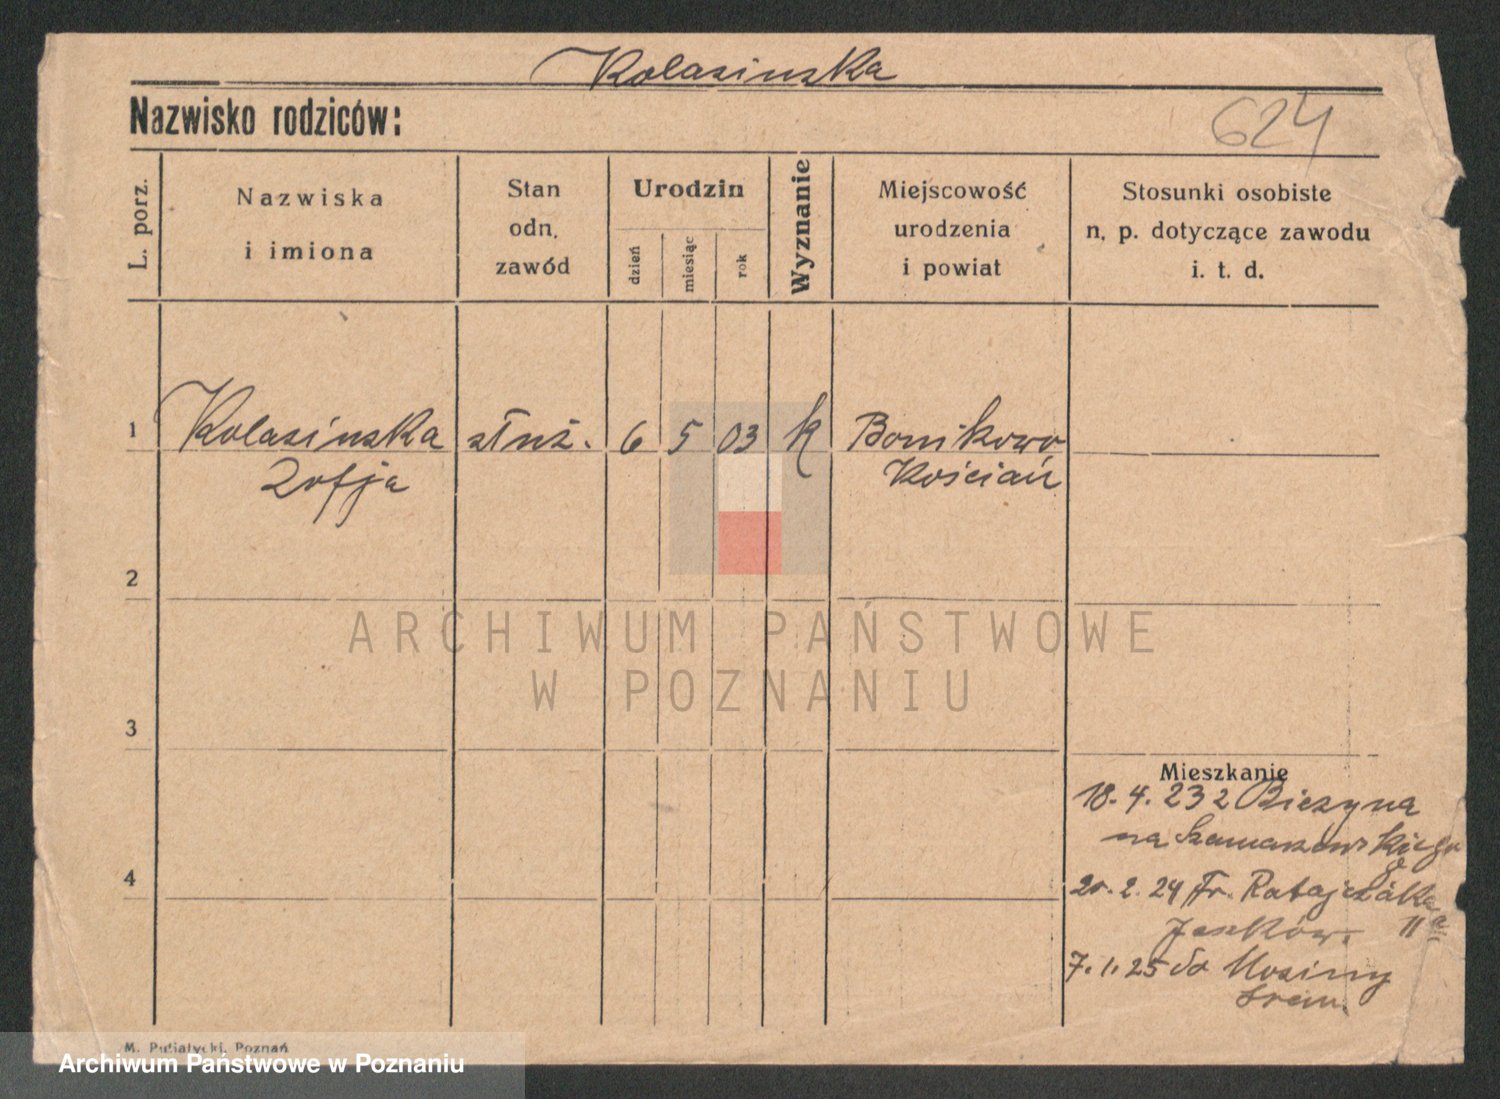 Kolasinska
Nazwisko rodziców:
624
L. porz.
Nazwiska
i imiona
Stan
odn.
zawód
Urodzin
dzień
miesiąc
rok
Wyznanie
Miejscowość
urodzenia
i powiat
Stosunki osobiste
n. p. dotyczące zawodu
i. t. d.
1 Kolasinska służ. 6 5 03 k Bonikowo
Zofja Kościań
2
ARCHIWUM PAŃSTWOWE
W POZNANIU
3
Mieszkanie
18. 4. 23 z Bieżyna
na
4
20. 2. 24 Fr. Ratajczaka
11
7. 1. 25 do Mosiny
Śrem.
M. Pufiatycki, Poznań
Archiwum Państwowe w Poznaniu